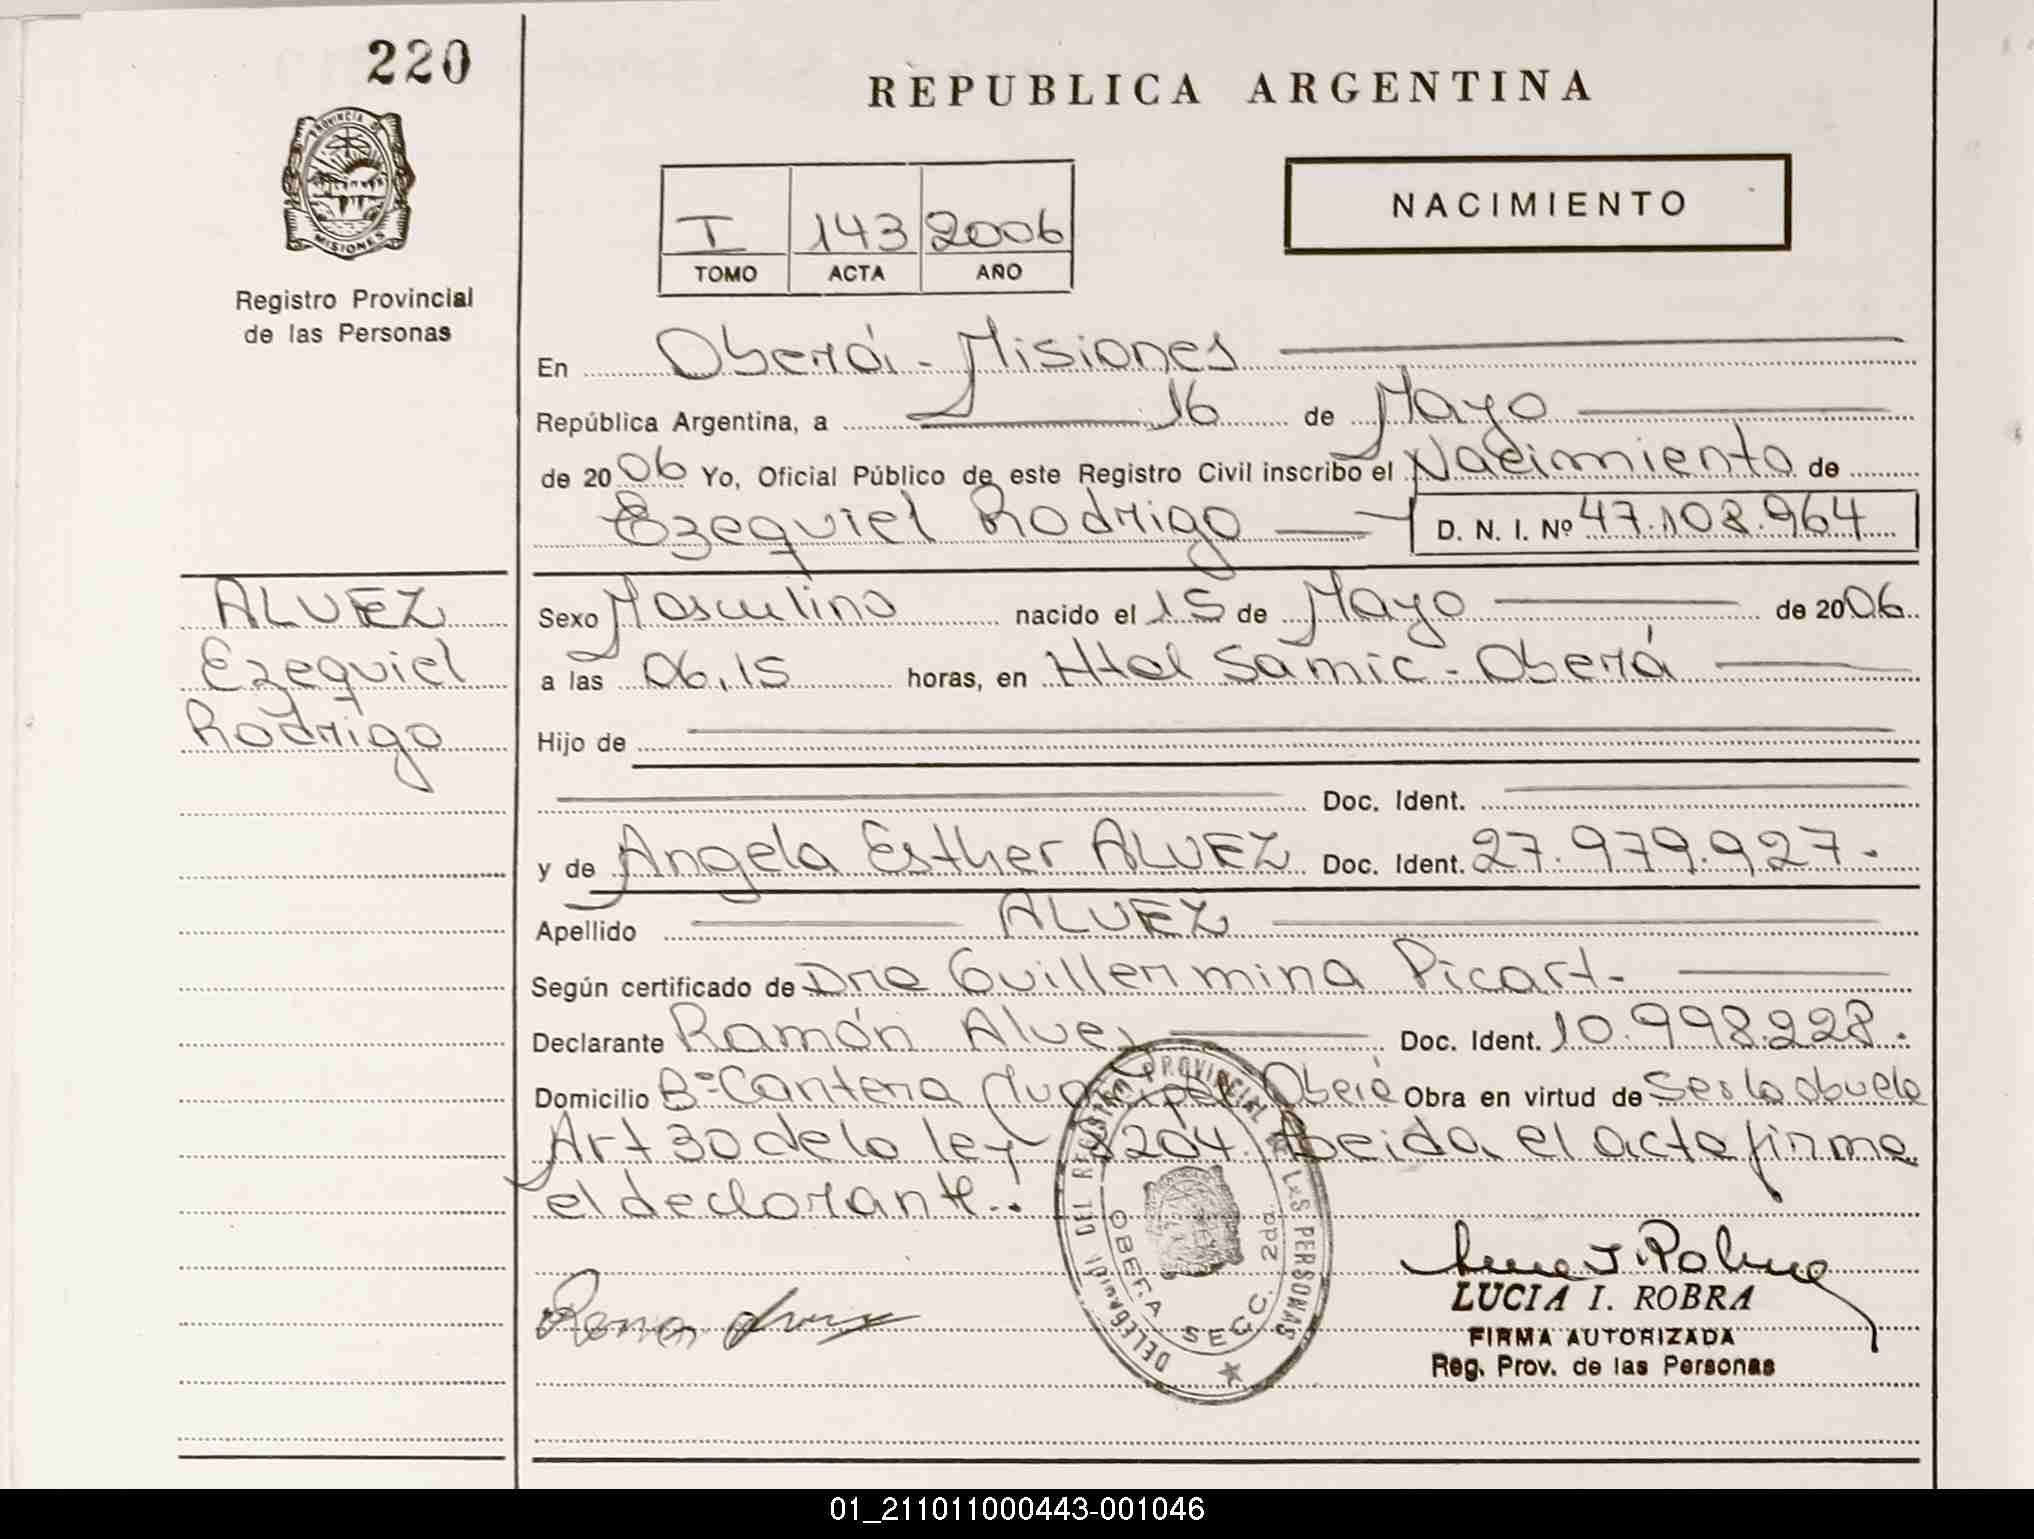 220
PROVINCIA DE
MISIONES
Registro Provincial
de las Personas
REPUBLICA ARGENTINA
I 143 2006
TOMO ACTA AÑO
NACIMIENTO
En Oberá - Misiones
República Argentina, a 16 de Mayo
de 2006 Yo, Oficial Público de este Registro Civil inscribo el Nacimiento de
Ezequiel Rodrigo D. N. I. Nº 47.108.964
ALVEZ
Ezequiel
Rodrigo
Sexo Masculino nacido el 15 de Mayo de 2006
a las 06,15 horas, en Htal Samic - Oberá
Hijo de
Doc. Ident.
y de Angela Esther ALVEZ Doc. Ident. 27.979.927.
Apellido ALVEZ
Según certificado de Dra Guillermina Picart.
Declarante Ramón Alvez Doc. Ident. 10.998.228.
Domicilio Bº Cantera Oberá Obra en virtud de Ser lo abuelo
Art 30 de la ley 8204. el acta firma
el declarante.
DELEGACION DEL REGISTRO PROVINCIAL DE LAS PERSONAS
OBERA SECC. 2da.
LUCIA I. ROBRA
FIRMA AUTORIZADA
Reg. Prov. de las Personas
01_211011000443-001046